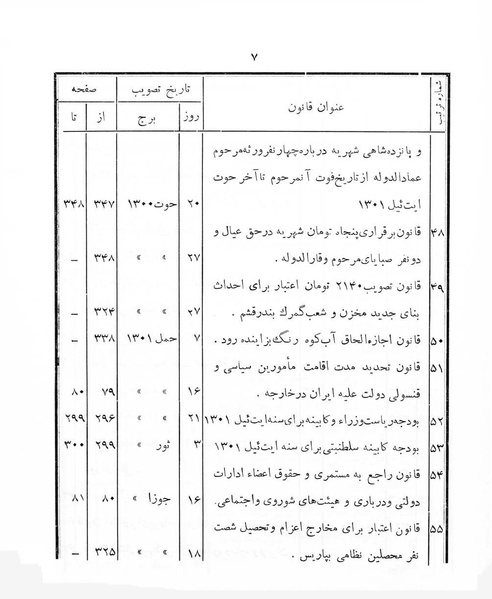 ۷
شماره ترتیب عنوان قانون تاریخ تصویب صفحه
روز برج از تا
و پانزده‌شاهی شهریه درباره چهارنفر ورثه مرحوم
عمادالدوله از تاریخ فوت آنمرحوم تا آخر حوت
ایت‌ئیل ۱۳۰۱ ۲۰ حوت ۱۳۰۰ ۳۴۷ ۳۴۸
۴۸ قانون برقراری پنجاه تومان شهریه درحق عیال و
دونفر صبایای مرحوم وقارالدوله . ۲۷ » » ۳۴۸ –
۴۹ قانون تصویب ۲۱۴۰ تومان اعتبار برای احداث
بنای جدید مخزن و شعب گمرك بندرقشم . ۲۷ » » ۳۲۴ –
۵۰ قانون اجازه الحاق آب کوه رنگ بزاینده رود . ۷ حمل ۱۳۰۱ ۳۳۸ –
۵۱ قانون تحدید مدت اقامت مأمورین سیاسی و
قنسولی دولت علیه ایران درخارجه . ۱۶ » » ۷۹ ۸۰
۵۲ بودجه ریاست وزراء و کابینه برای سنه ایت‌ئیل ۱۳۰۱ ۲۱ » » ۲۹۶ ۲۹۹
۵۳ بودجه کابینه سلطنتی برای سنه ایت‌ئیل ۱۳۰۱ ۳ ثور » ۲۹۹ ۳۰۰
۵۴ قانون راجع به مستمری و حقوق اعضاء ادارات
دولتی ودرباری و هیئت‌های شوروی واجتماعی. ۱۶ جوزا » ۸۰ ۸۱
۵۵ قانون اعتبار برای مخارج اعزام وتحصیل شصت
نفر محصلین نظامی بپاریس . ۱۸ » » ۳۲۵ –